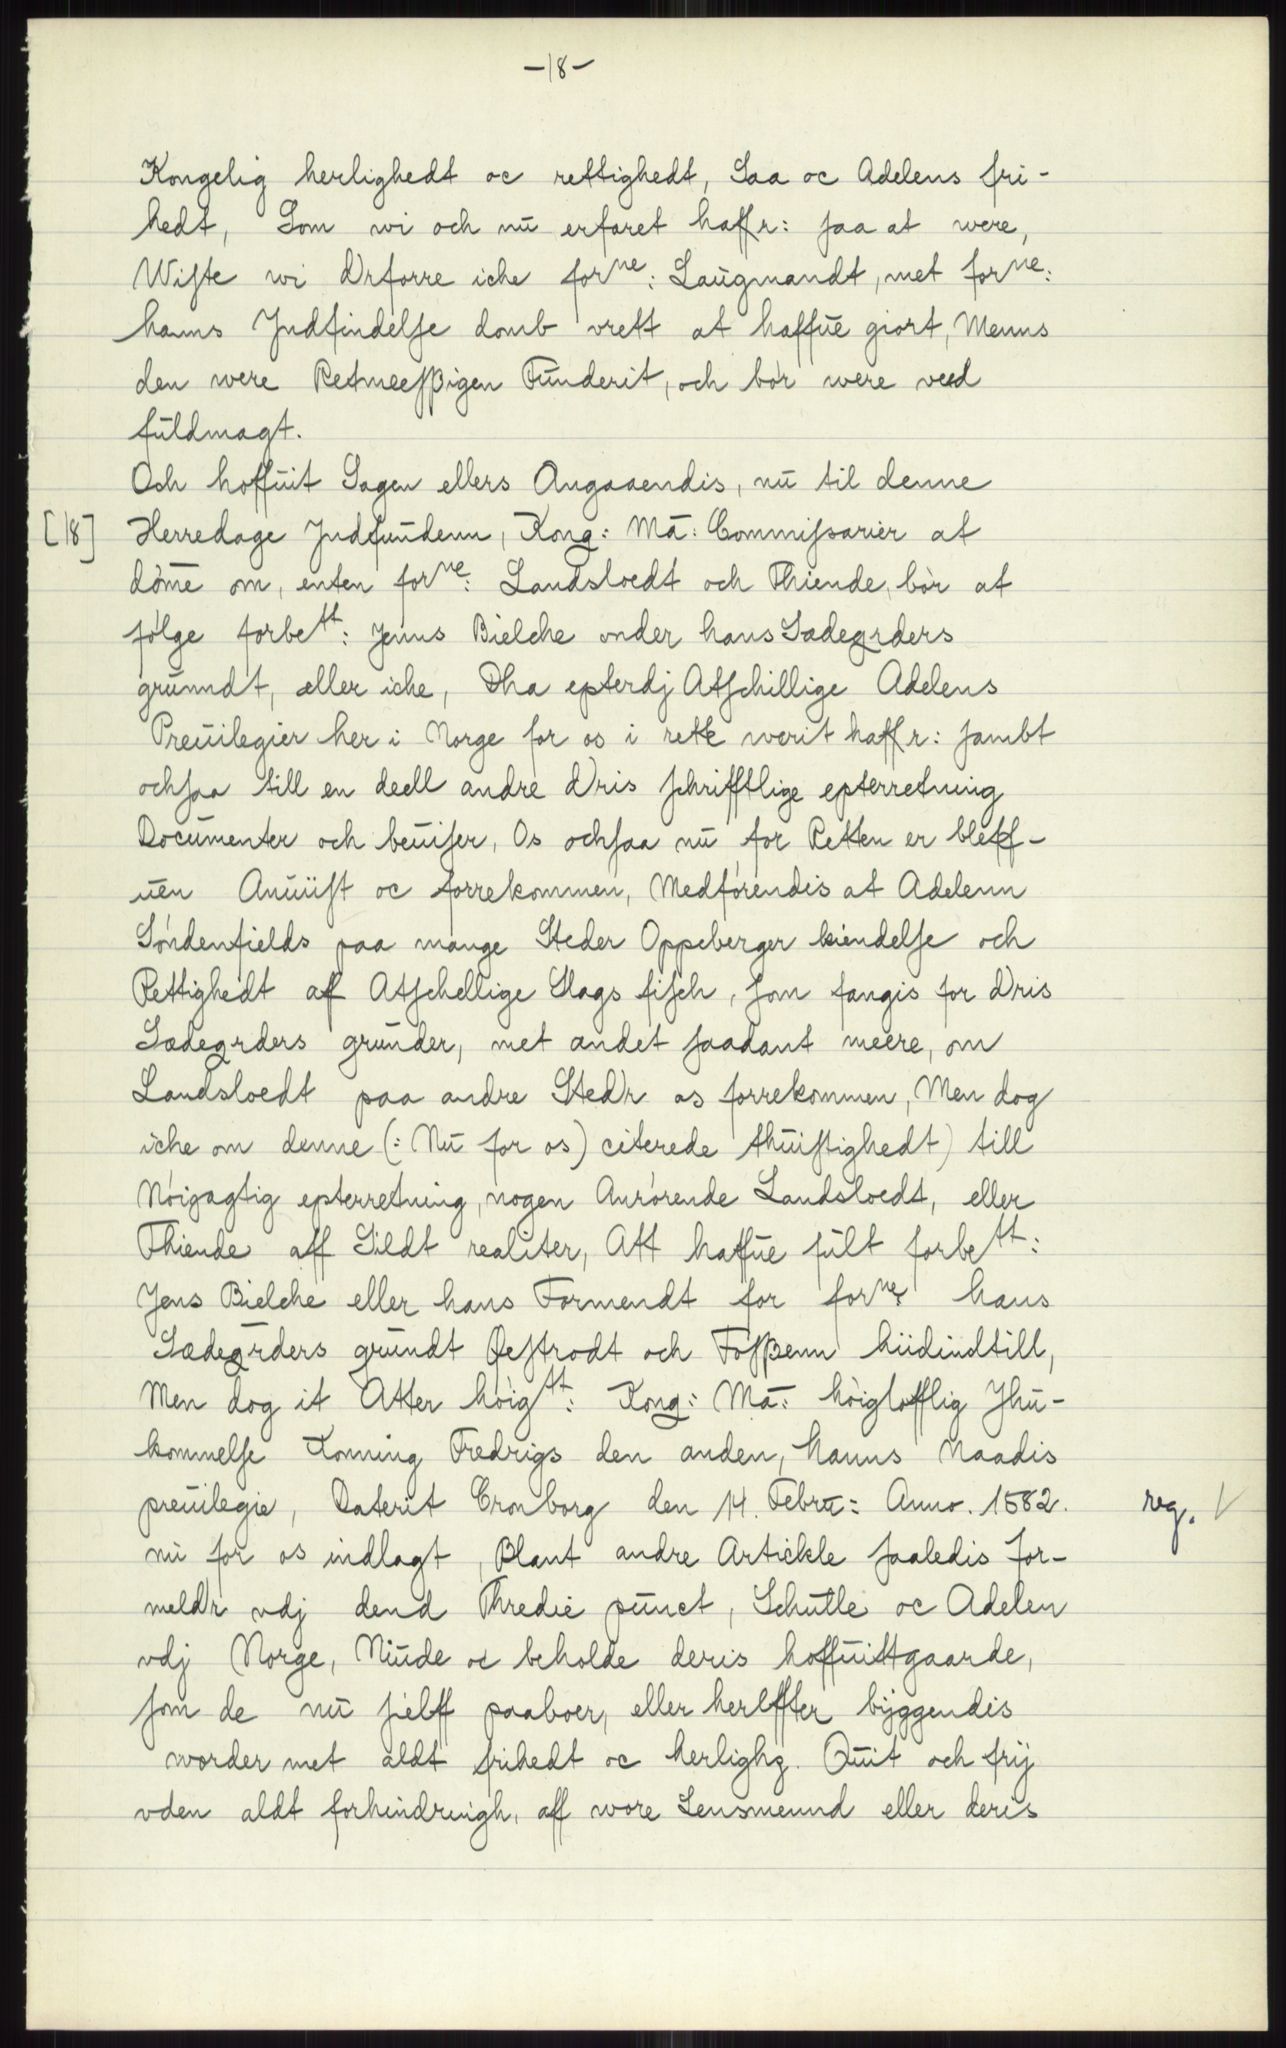 -18-
Kongelig herlighedt oc rettighedt, Saa oc Adelens fri-
hedt, Som wi och nū erfaret haffr: saa at were,
Wiste wi Drforre iche forne: Laugmandt, met forne:
hanns Jndfindelse domb vrett at haffue giort, Menns
den were Retmeesßigen Funderit, och bør were ved
fuldmagt.
Och hoffuit Sagen ellers Angaaendis, nū til denne
[18] Herredage Jndfundenn, Kong: Ma: Commissarier at
døme om, enten forne: Landsloedt och Thiende, bør at
følge forbett: Jenns Bielche vnder hans Sædegrders
grunndt, æller iche, Dha epterdj Atschillige Adelens
Preuilegier her i Norge for os i rette werit haffr: sambt
ochsaa till en deell andre Dris schrifftlige epterretning
Documenter och beuiser, Os ochsaa nū for Retten er bleff-
uen Anuiist oc forrekommen, Medførendis at Adelenn
Søndenfields paa mange Steder Oppeberger kiendelse och
Rettighedt aff Atschellige Slags fisch, som fangis for Dris
Sædegrders grunder, met andet saadant meere, om
Landsloedt paa andre Stedr os forrekommen, Men dog
iche om denne (: Nū for os) citerede thuistighedt) till
Nøigagtig epterretning, nogen Anrørende Landsloedt, eller
Thiende aff Sildt realiter, Att haffue fult forbett:
Jens Bielche eller hans Formendt for forne hans
Sædegrders grundt Øestrodt och Fosßenn hiidindtill,
Men dog it Atter høigtt: Kong: Ma: høiglofflig Jhu-
kommelse Konning Fredrigs den anden, Hanns Naadis
preuilegie, Daterit Cronborg den 14. Febru: Anno. 1582. reg. V
nū for os indlagt, Blant andre Artickle saaledis for-
meldr vdj dend Thredie punct, Schulle oc Adelen
vdj Norge, Niude oc beholde deris hoffuittgaarde,
som de nū sielff paaboer, eller herIffter byggendis
worder met aldt frihedt oc herlighz. Quit och frij
vden aldt forhindringh, aff wore Lensmennd eller deris